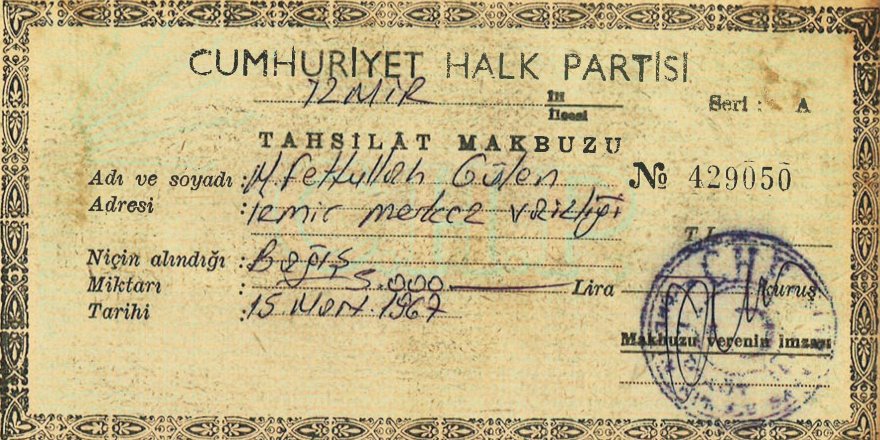 CUMHURİYET HALK PARTİSİ
İZMİR İli
İlçesi
Seri : A
TAHSİLÂT MAKBUZU
Adı ve soyadı : M. Fethullah Gülen
№ 429050
Adresi : izmir merkez vaizliği
T. L.
Niçin alındığı : Bağış
Miktarı : 5.000 Lira Kuruş
Tarihi : 15 Mart. 1967
Makbuzu verenin imzası
CHP